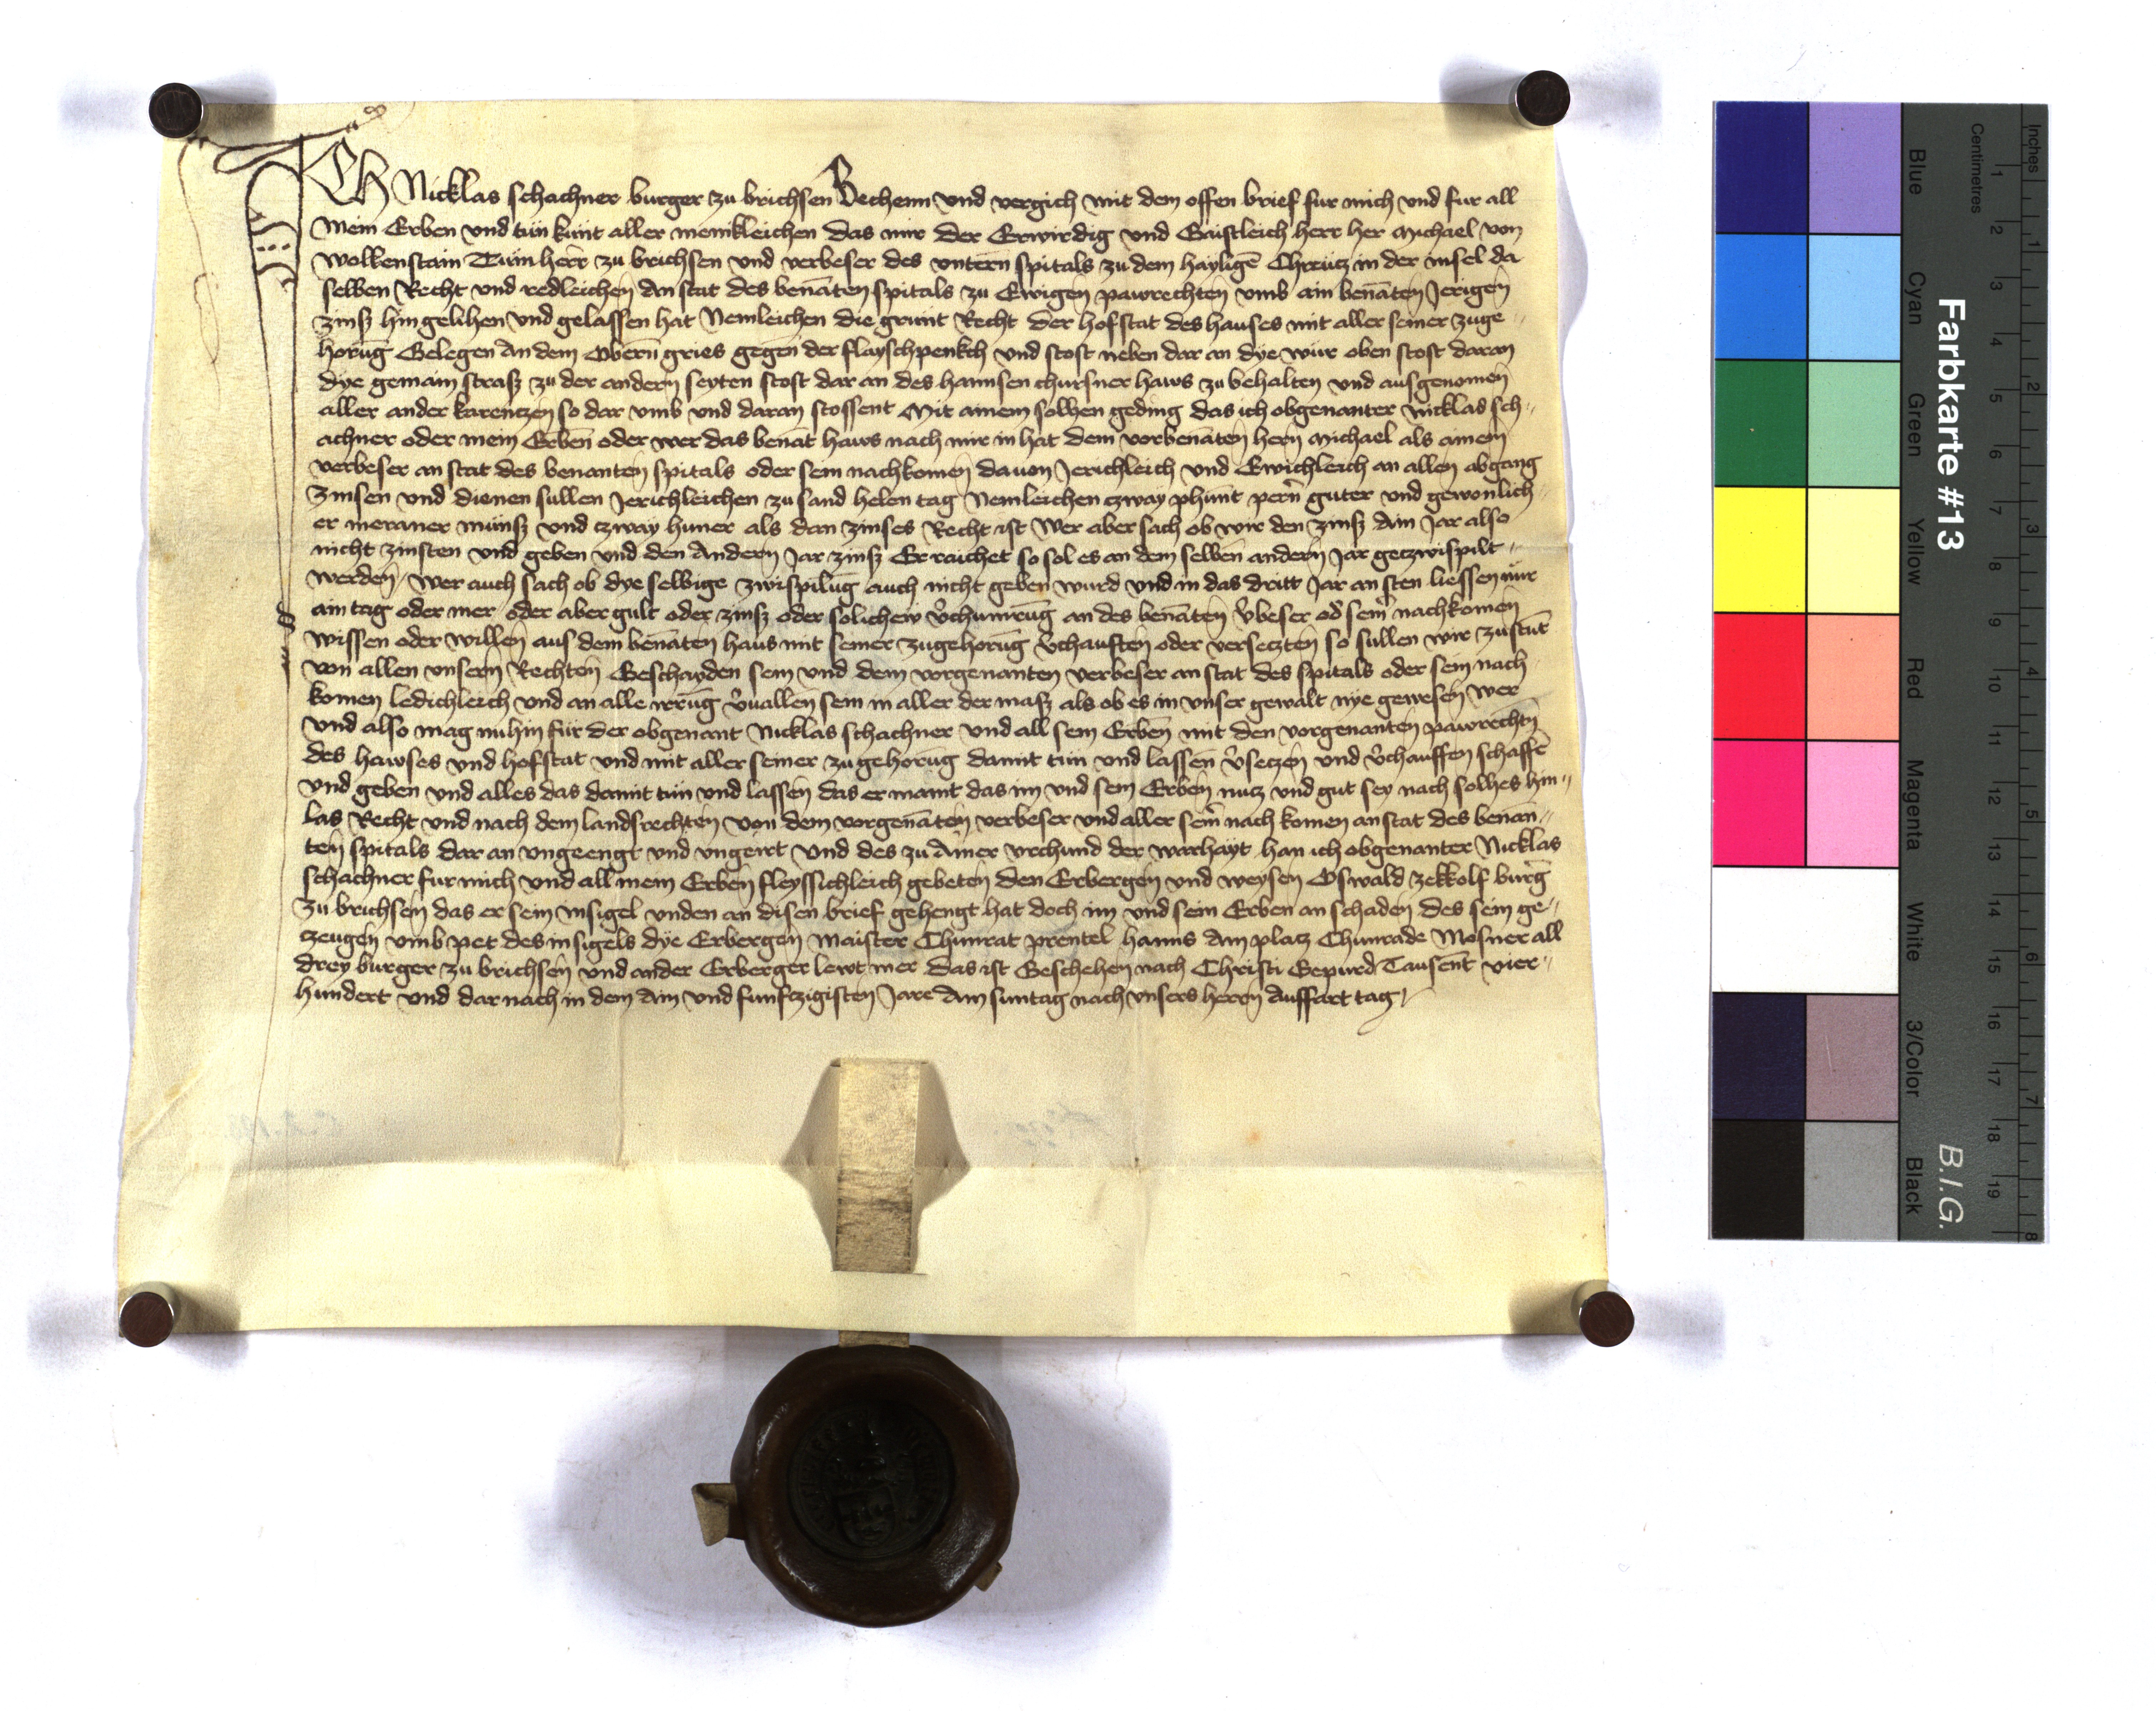 ICH Nicklas schachner burger zu brichsen Bechenn vnd vergich mit dem offen brief fur mich vnd fur all
Mein Erben vnd tün kunt aller menikleichen das mir der Erwirdig vnd Gaistleich herr her Michael von
wolkenstain Tümherr zu brichsen vnd verbeser des vntern spitals zu dem hayligē Chreücz in der insel da
selben Recht vnd redleichen An stat des benāten spitals zu Ewigen pawrechten vmb ain benāten Jerigen
zinß hin gelihen vnd gelassen hat Nemleichen die grunt Recht der hofstat des hauses mit aller seiner zuge„
horūg Gelegen An dem Obern gries gegen der flayschpenkch vnd stost neben dar an dye wür oben stost daran
dye gemain straß zu der andern seyten stost dar an des hannsen chürsner haws zu behalten vnd ausgenomen
aller ander karentzen so dar vmb vnd daran stossent Mit ainem solhen geding das ich obgenanter Nicklas sch„
achner oder mein Erben oder wer das benāt haws nach mir in hat dem vorbenāten hern Michael als ainem
verbeser an stat des benanten spitals oder sein nachkomen dauon Jerichleich vnd Ewichleich an allen abgang
zinsen vnd dienen sullen Jerichleichen zu sand helen tag Nemleichen czway phunt pern guter vnd gewonlich„
er meraner münß vnd czway huner als dan zinses Recht ist Wer aber sach ob wir den zinß Ain Jar also
nicht zinsten vnd geben vnd den Andern Jar zinß Er raichet so sol es an dem selben andern Jar geczwispilt„
werden / wer auch sach ob dye selbige zwispilūg auch nicht geben wurd vnd in das dritt Jar an sten liessen nür
ain tag oder mer oder aber gult oder zinß oder solichew v̄chumrūg an des benāten v̄beser od̄ seinr nachkomen
wissen oder willen aus dem benāten haus mit seiner zugehorūg v̄chauften oder verseczten so sullen wir zustūt
von allen vnsern Rechten Geschayden sein vnd dem vorgenanten verbeser an stat des spitals oder sein nach
komen ledichleich vnd an alle irrūg v̄uallen sein in aller der maß als ob es in vnser gewalt nye gewesen wer
vnd also mag nuhin für der obgenant Nicklas schachner vnd all sein Erben mit den vorgenanten pawrechtn
des hawses vnd hofstat vnd mit aller seiner zu gehorūg damit tün vnd lassen v̄seczen vnd v̄chauffen schaffē
vnd geben vnd alles das damit tün vnd lassen das er maint das im vnd sein Erben nucz vnd gut sey nach solhes hin„
las Recht vnd nach dem landsrechten von dem vorgenāten verbeser vnd aller seinr nach komen an stat des benan„
ten spitals dar an vngeengt vnd vngeirt Vnd des zu Ainer vrchund der warhayt han ich obgenanter Nicklas
schachner fur mich vnd all mein Erben fleyssichleich gebeten den Erbergen vnd weysen Oswald zekkolf burḡ
zu brichsen das er sein insigel vnden an disen brief gehengt hat doch im vnd sein Erben an schaden des sein ge„
czeugen vmb pet des insigels dye Erbergen Maister Chunrat prentel hanns Am placz Chunrade Mosner all
drey burger zu brichsen vnd ander Erberger lewt mer das ist Geschehen nach Christi Gepurd Tausent vier„
hundert vnd dar nach in dem Ain vnd funfczigisten Jare Am suntag nach vnsers herrn Auffart tag
Farbkarte #13 B.I.G.
Inches 1 2 3 4 5 6 7 8
Centimetres 1 2 3 4 5 6 7 8 9 10 11 12 13 14 15 16 17 18 19
Blue Cyan Green Yellow Red Magenta White 3/Color Black